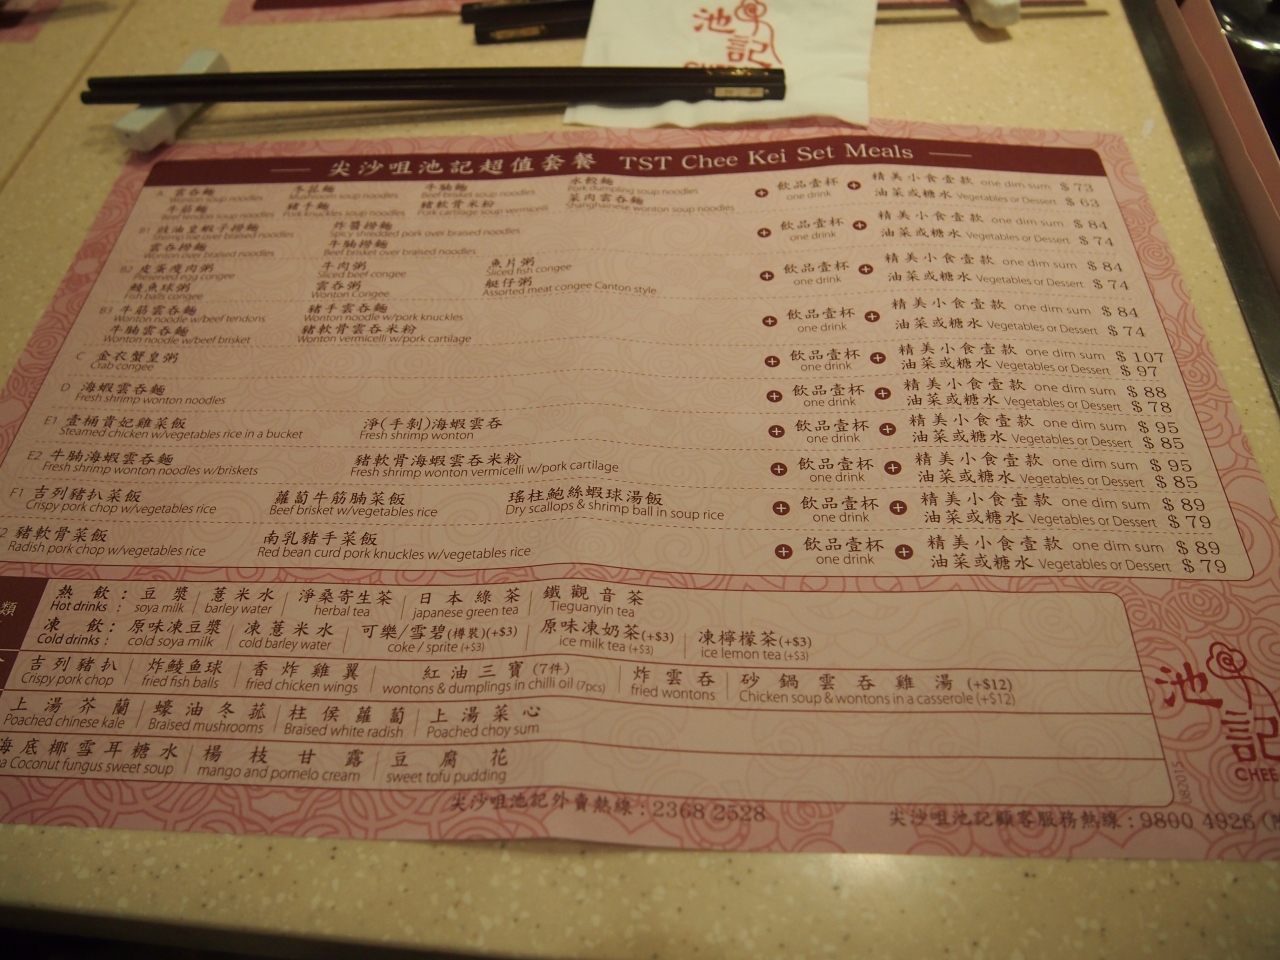 池記
尖沙咀池記超值套餐 TST Chee Kei Set Meals
A 雲吞麵 牛筋麵 牛腩麵 水餃麵
Wonton soup noodles Mushroom soup noodles Beef brisket soup noodles Pork dumpling soup noodles
牛筋麵 豬手麵 豬軟骨米粉 菜肉雲吞麵
Beef tendon soup noodles Pork knuckles soup noodles Pork cartilage soup vermicelli Shanghainese wonton soup noodles
飲品壹杯 精美小食壹款 one dim sum $ 73
one drink 油菜或糖水 Vegetables or Dessert $ 63
B1 豉油皇蝦子撈麵 炸醬撈麵
Shrimp roe over braised noodles Spicy shredded pork over braised noodles
雲吞撈麵 牛腩撈麵
Wonton over braised noodles Beef brisket over braised noodles
飲品壹杯 精美小食壹款 one dim sum $ 84
one drink 油菜或糖水 Vegetables or Dessert $ 74
B2 皮蛋瘦肉粥 牛肉粥 魚片粥
Preserved egg congee Sliced beef congee Sliced fish congee
鯪魚球粥 雲吞粥 艇仔粥
Fish balls congee Wonton Congee Assorted meat congee Canton style
飲品壹杯 精美小食壹款 one dim sum $ 84
one drink 油菜或糖水 Vegetables or Dessert $ 74
B3 牛筋雲吞麵 豬手雲吞麵
Wonton noodle w/beef tendons Wonton noodle w/pork knuckles
牛腩雲吞麵 豬軟骨雲吞米粉
Wonton noodle w/beef brisket Wonton vermicelli w/pork cartilage
飲品壹杯 精美小食壹款 one dim sum $ 84
one drink 油菜或糖水 Vegetables or Dessert $ 74
C 金衣蟹皇粥 飲品壹杯 精美小食壹款 one dim sum $ 107
Crab congee one drink 油菜或糖水 Vegetables or Dessert $ 97
D 海蝦雲吞麵 飲品壹杯 精美小食壹款 one dim sum $ 88
Fresh shrimp wonton noodles one drink 油菜或糖水 Vegetables or Dessert $ 78
E1 壹桶貴妃雞菜飯 淨(手剝)海蝦雲吞 飲品壹杯 精美小食壹款 one dim sum $ 95
Steamed chicken w/vegetables rice in a bucket Fresh shrimp wonton one drink 油菜或糖水 Vegetables or Dessert $ 85
E2 牛腩海蝦雲吞麵 豬軟骨海蝦雲吞米粉 飲品壹杯 精美小食壹款 one dim sum $ 95
Fresh shrimp wonton noodles w/briskets Fresh shrimp wonton vermicelli w/pork cartilage one drink 油菜或糖水 Vegetables or Dessert $ 85
F1 吉列豬扒菜飯 蘿蔔牛筋腩菜飯 瑤柱鮑絲蝦球湯飯 飲品壹杯 精美小食壹款 one dim sum $ 89
Crispy pork w/vegetables rice Beef brisket w/vegetables rice Dry scallops & shrimp ball in soup rice one drink 油菜或糖水 Vegetables or Dessert $ 79
2 豬軟骨菜飯 南乳豬手菜飯 飲品壹杯 精美小食壹款 one dim sum $ 89
Radish pork chop w/vegetables rice Red bean curd pork knuckles w/vegetables rice one drink 油菜或糖水 Vegetables or Dessert $ 79
類
熱飲: 豆漿 薏米水 淨桑寄生茶 日本綠茶 鐵觀音茶
Hot drinks : soya milk barley water herbal tea japanese green tea Tieguanyin tea
凍飲: 原味凍豆漿 凍薏米水 可樂/雪碧(樽裝)(+$3) 原味凍奶茶(+$3) 凍檸檬茶(+$3)
Cold drinks : cold soya milk cold barley water coke / sprite (+$3) ice milk tea (+$3) ice lemon tea (+$3)
吉列豬扒 炸鯪魚球 香炸雞翼 紅油三寶(7件) 炸雲吞 砂鍋雲吞雞湯(+$12)
Crispy pork chop fried fish balls fried chicken wings wontons & dumplings in chilli oil (7pcs) fried wontons Chicken soup & wontons in a casserole (+$12)
上湯芥蘭 蠔油冬菰 柱侯蘿蔔 上湯菜心
Poached chinese kale Braised mushrooms Braised white radish Poached choy sum
海底椰雪耳糖水 楊枝甘露 豆腐花
a Coconut fungus sweet soup mango and pomelo cream sweet tofu pudding
池記
CHEE
尖沙咀池記外賣熱線:2368 2528
尖沙咀池記顧客服務熱線:9800 4926